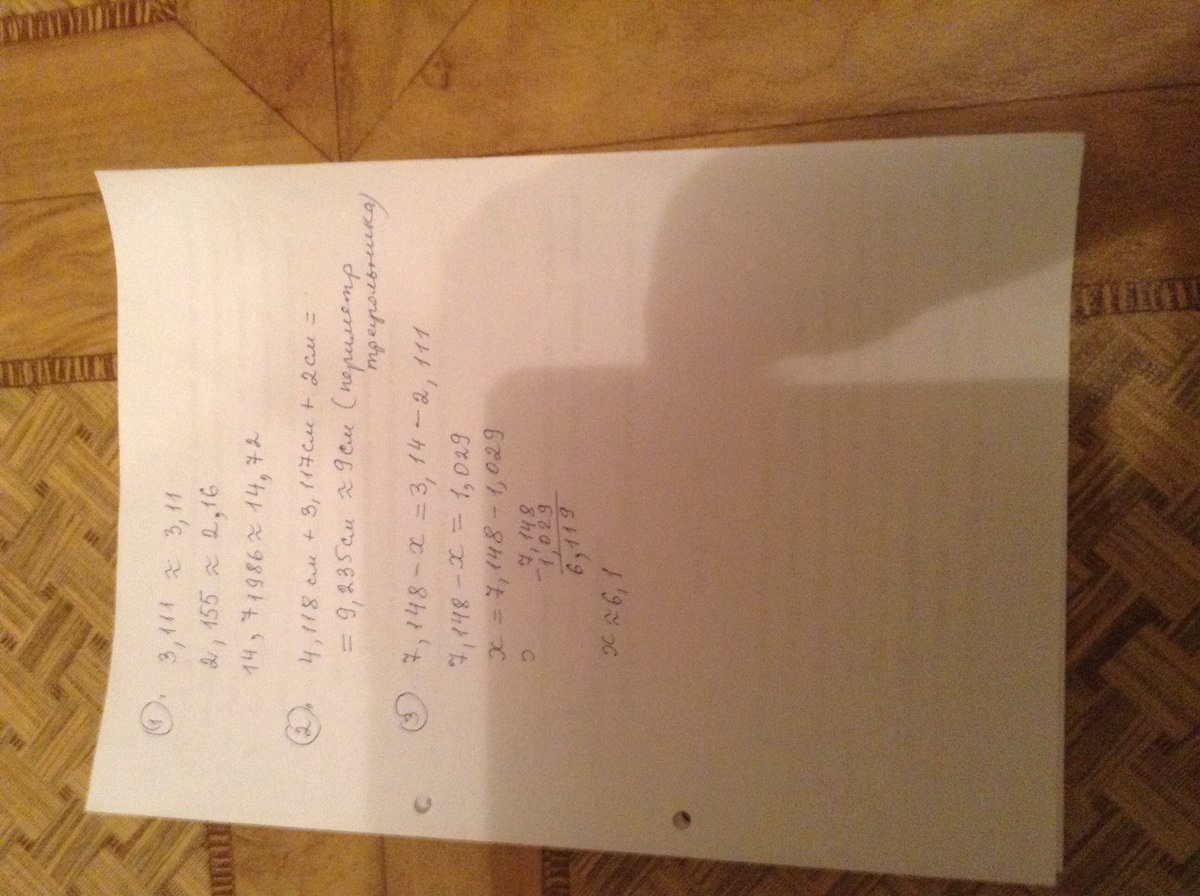 1. 3,111 ≈ 3,11
2,155 ≈ 2,16
14,71986 ≈ 14,72
2. 4,118 см + 3,117см + 2см =
= 9,235см ≈ 9см (периметр
треугольника)
3 7,148 - x = 3,14 - 2,111
7,148 - x = 1,029
x = 7,148 - 1,029
- 7,148
1,029
6,119
x ≈ 6,1